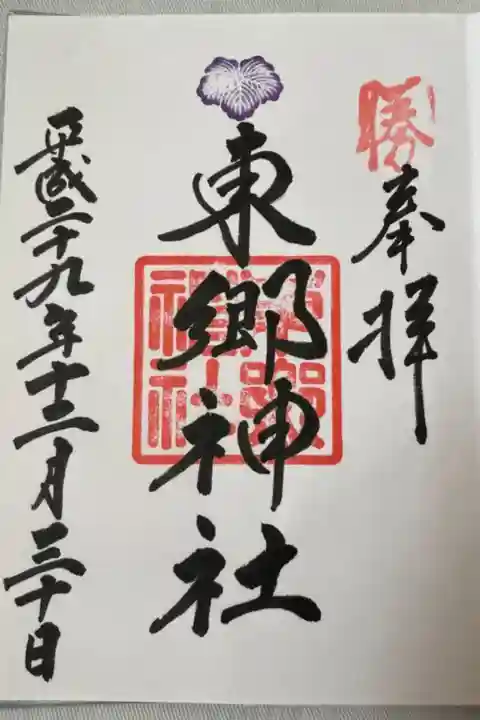 勝
奉拝
東郷神社
東郷神社
平成二十九年十二月三十日